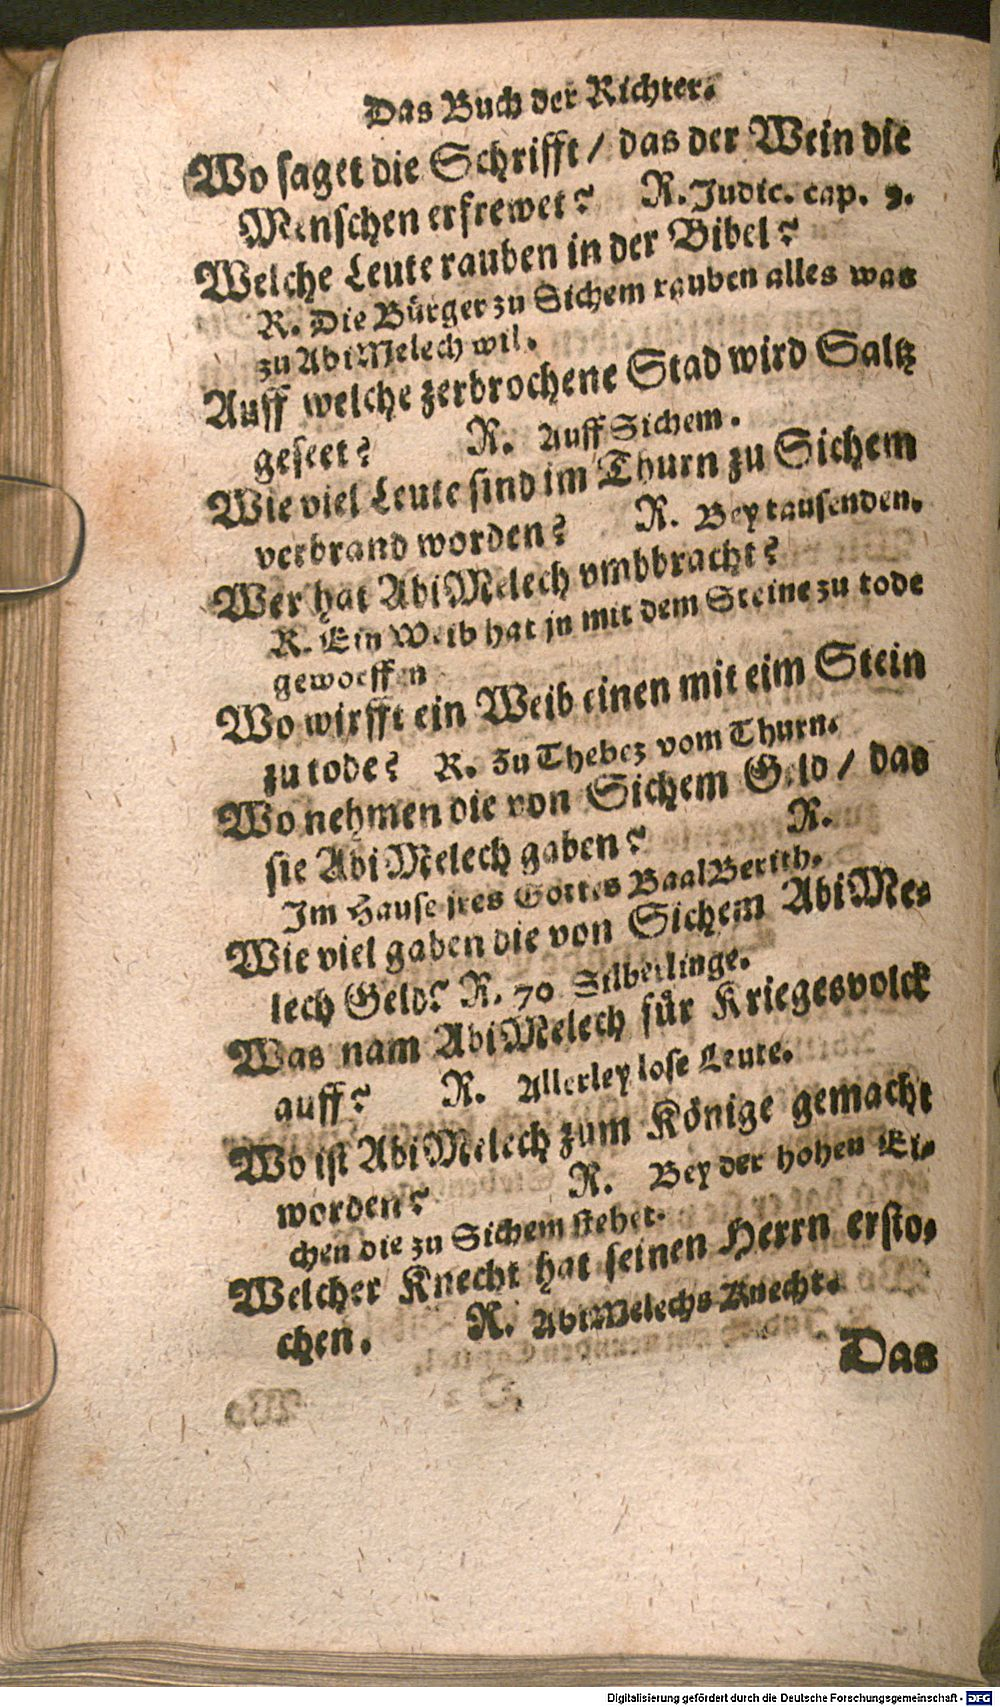 Das Buch der Richter.
Wo saget die Schrifft / das der Wein die
Menschen erfrewet? R. Judic. cap. 9.
Welche Leute rauben in der Bibel?
R. Die Bürger zu Sichem rauben alles was
zu AbiMelech wil.
Auff welche zerbrochene Stad wird Saltz
geseet? R. Auff Sichem.
Wie viel Leute sind im Thurn zu Sichem
verbrand worden? R. Bey tausenden.
Wer hat AbiMelech vmbbracht?
R. Ein Weib hat jn mit dem Steine zu tode
geworffen
Wo wirfft ein Weib einen mit eim Stein
zu tode? R. Zu Thebez vom Thurn.
Wo nehmen die von Sichem Geld / das
sie AbiMelech gaben? R.
Im Hause jres Gottes BaalBerith.
Wie viel gaben die von Sichem AbiMe-
lech Geld? R. 70 Silberlinge.
Was nam AbiMelech für Kriegesvolck
auff? R. Allerley lose Leute.
Wo ist AbiMelech zum Könige gemacht
worden? R. Bey der hohen Ei-
chen die zu Sichem stehet.
Welcher Knecht hat seinen Herrn ersto-
chen. R. AbiMelechs Knecht.
Das
Digitalisierung gefördert durch die Deutsche Forschungsgemeinschaft - DFG